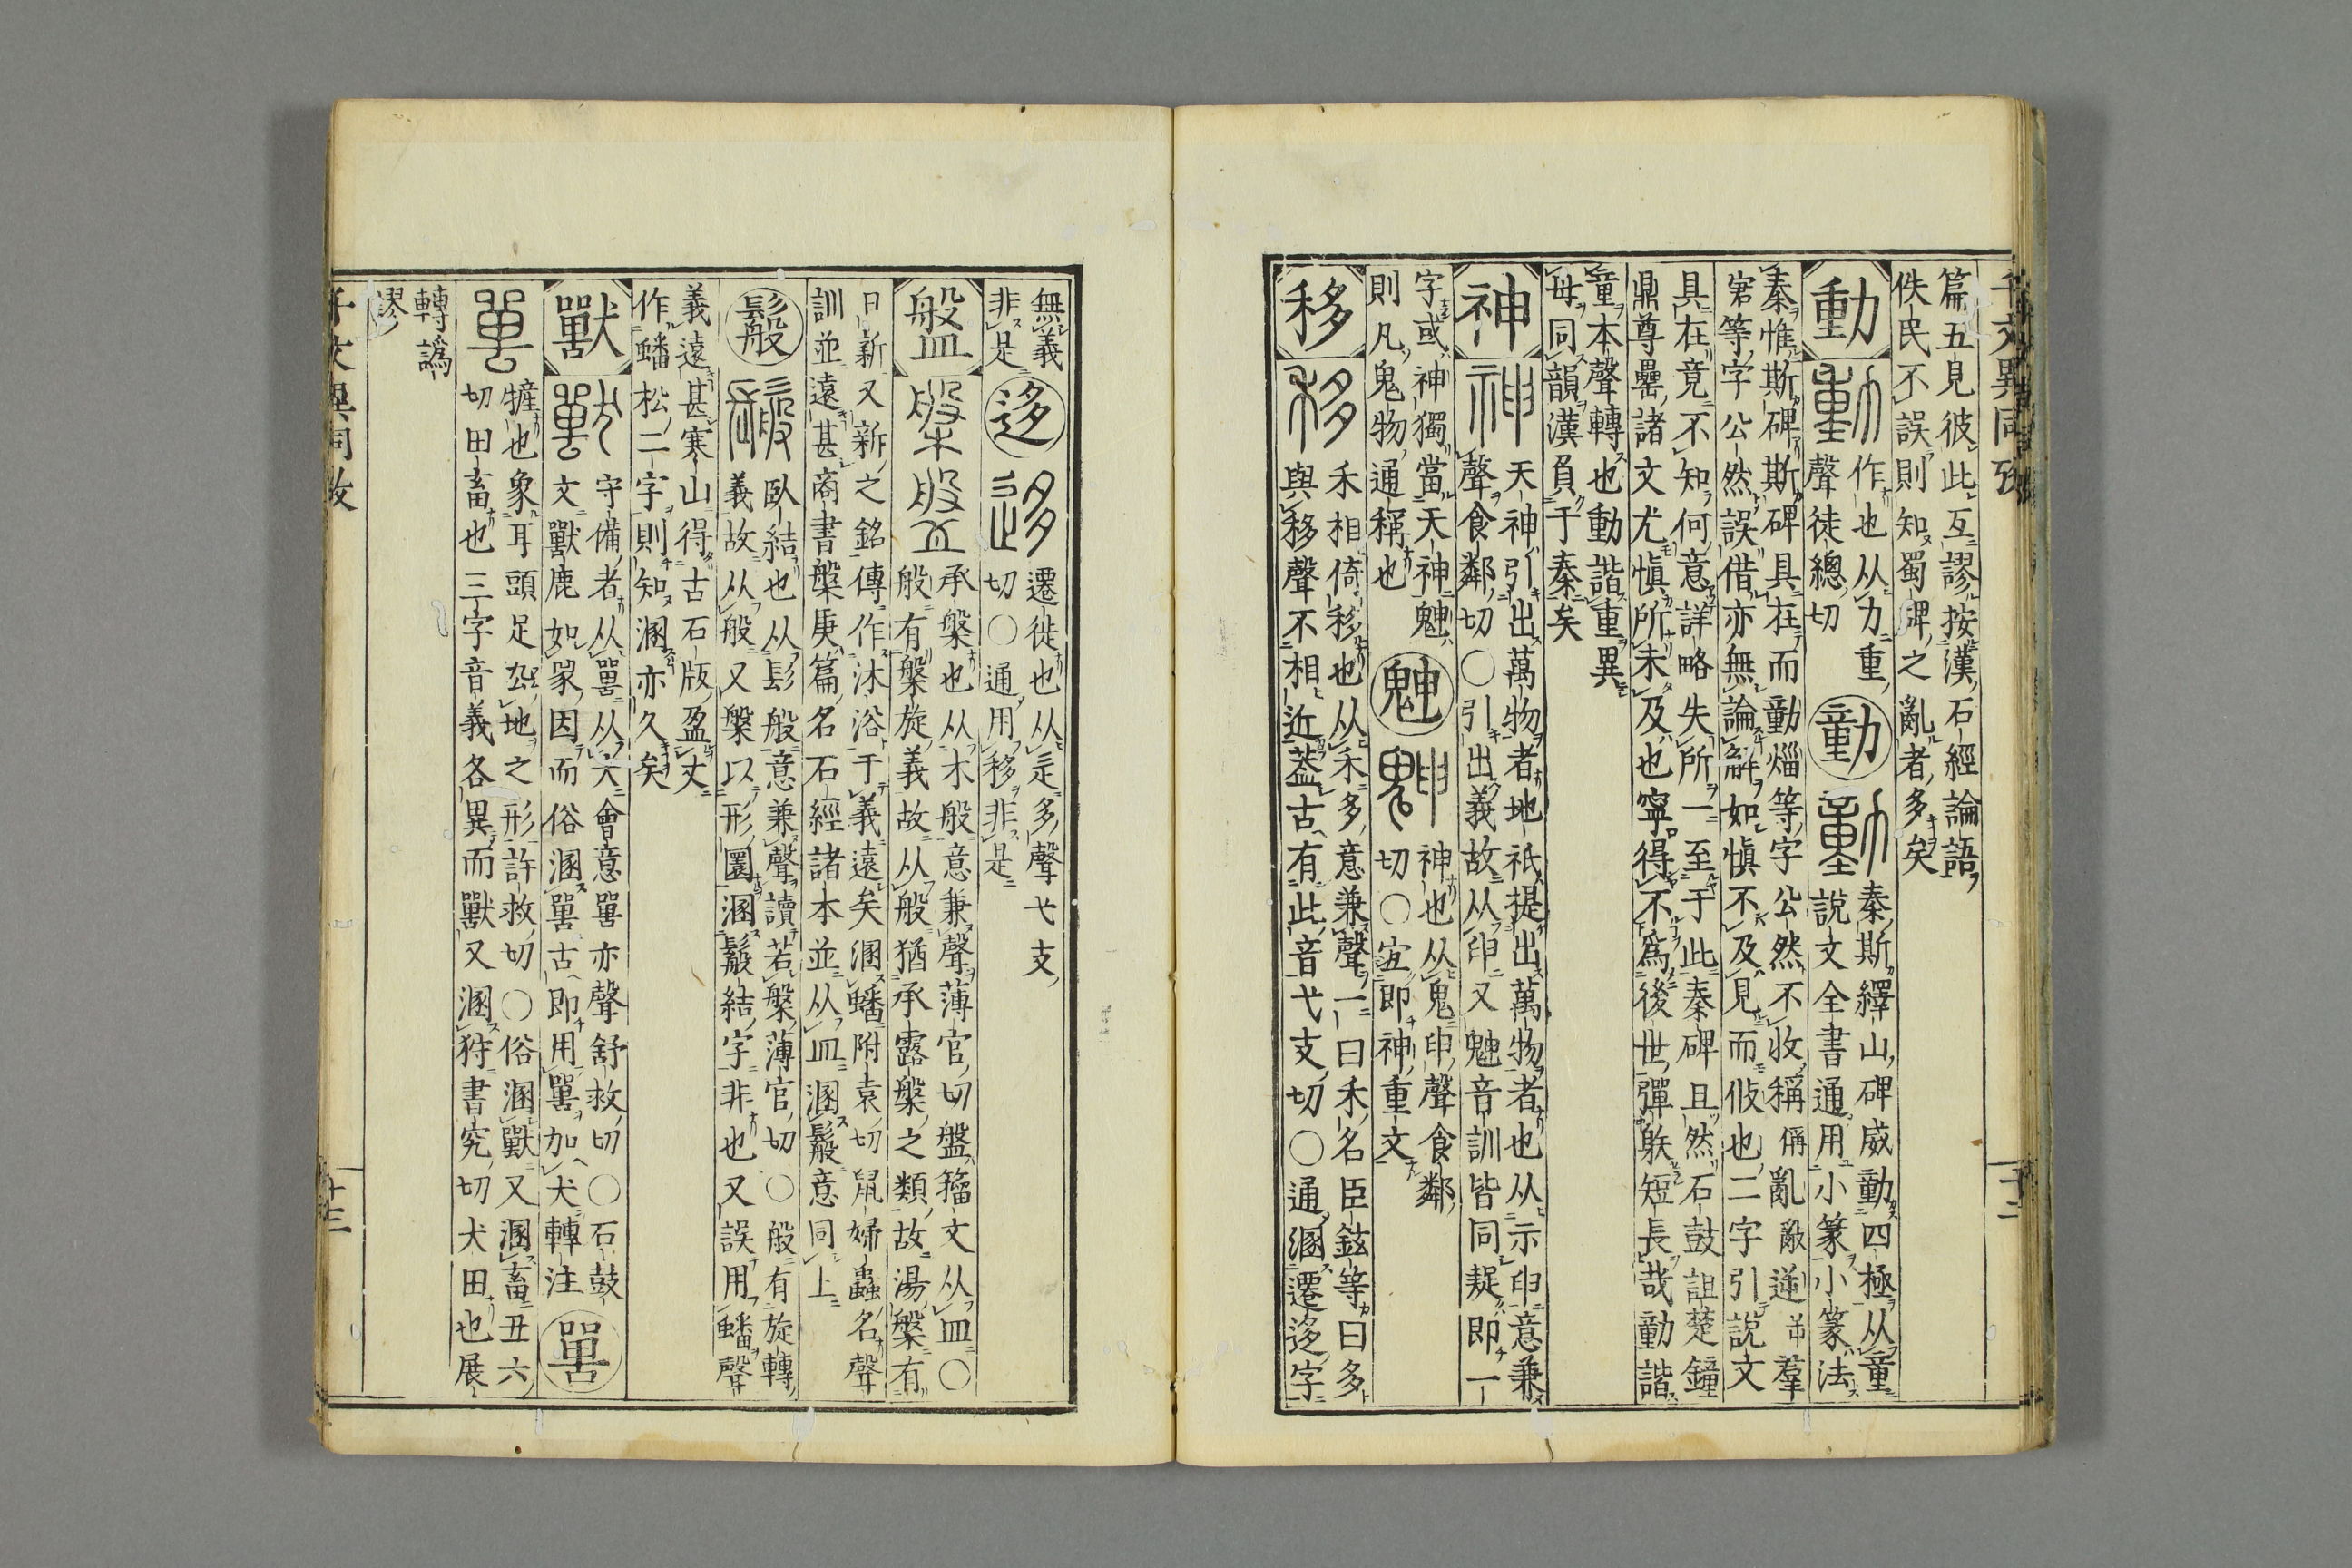 千文異同攷
篇五見彼此互謬按漢石經論語
佚民不誤則知蜀碑之亂者多矣
動
作也从力重
聲徒總切
勭
秦斯繹山碑威動四極从童
說文全書通用小篆小篆法
秦惟斯碑斯碑具在而動𡿺等字公然不收稱偁亂敵逆羣
等字公然誤借亦無論解如愼不及見而作也二字引說文
具在竟不知何意詳略失所一至于此秦碑且然石鼓詛楚鐘
鼎尊罍諸文尤愼所未及也寧得不爲後世彈躲短長哉動諧
童本聲轉也動諧重異
母同韻漢負于秦矣
神
天神引出萬物者地祇提出萬物者也从示申意兼
聲食鄰切〇引出義故从申又魋音訓皆同疑即一
字或神獨當天神魋
則凡鬼物通稱也
神也从鬼申聲食鄰
切〇宐即神重文
移
禾相倚移也从禾多意兼聲一曰禾名臣鉉等曰多
與移聲不相近蓋古有此音弋支切〇通溷遷迻字
無義
非是
迻
遷徙也从辵多聲弋支
切〇通用移非是
盤
承槃也从木般意兼聲薄官切盤籀文从皿〇
般有槃旋義故从般猶承露槃之類故湯槃有
日新又新之銘傳作沐浴于義遠矣溷蟠附袁切鼠婦蟲名聲
訓並遠甚商書槃庚篇名石經諸本並从皿溷鬆意同上
臥結也从髟般意兼聲讀若槃薄官切〇般有旋轉
義故从般又槃以形圜溷結字非也又誤用蟠聲
義遠甚寒山得古石版盈丈
作蟠松二字則知溷亦久矣
獸
守備者从嘼从犬會意嘼亦聲舒救切〇石鼓
文獸鹿如豕因而俗溷嘼古即用嘼加犬轉注
嘼
㹌也象耳頭足厹地之形許救切〇俗溷獸又溷畜丑六
切田畜也三字音義各異而獸又溷狩書究切犬田也展
轉譌
謬
千文異同攷
十三